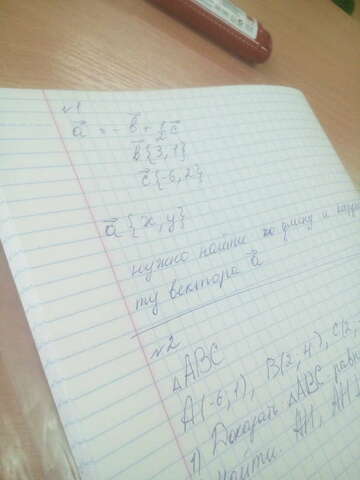 №1
a⃗ = -b⃗ + ½c⃗
b⃗{3,1}
c⃗{-6,2}
a⃗{x,y}
нужно найти длину и коорди
ту вектора a⃗
№2
△ABC
A(-6,1), B(2,4), C(2,
1) Доказать △ABC равн
Найти. AH, AH